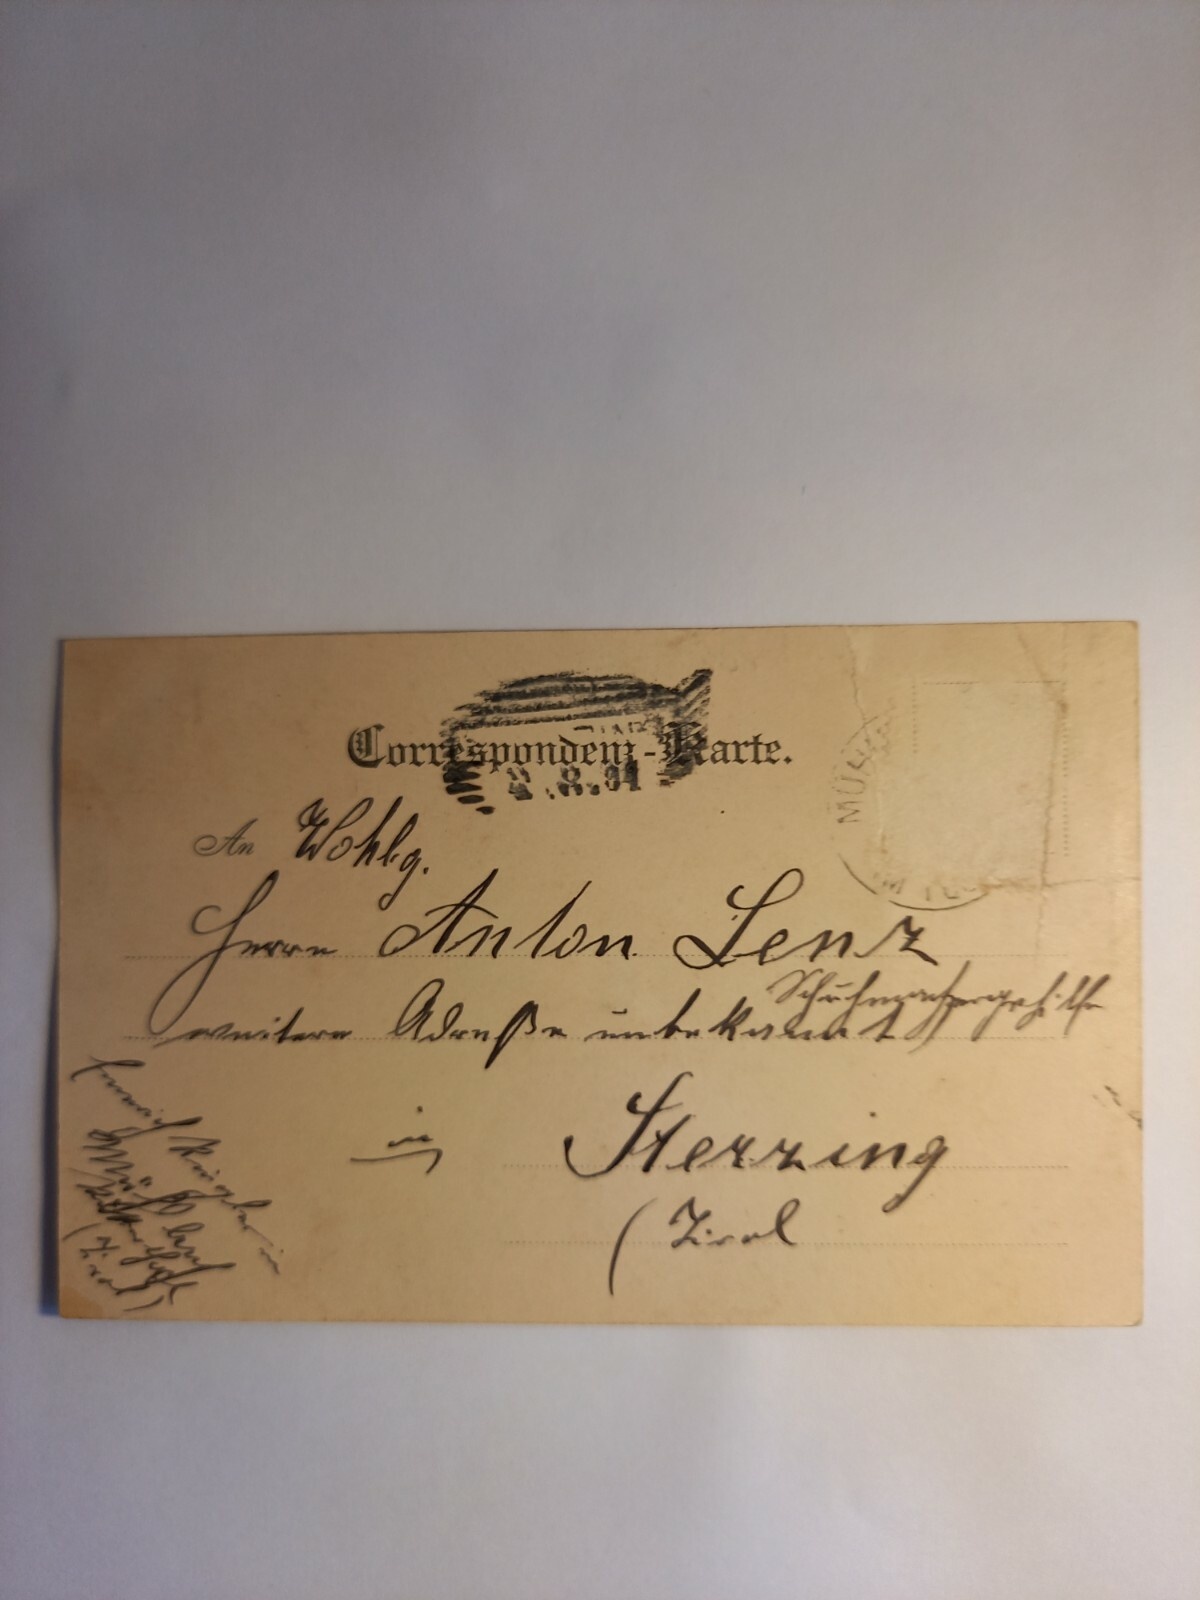 Correspondenz-Karte.
8.01
MÜH
An Wohlg.
Herrn Anton Lenz
Schuhmachergehilfe
weitere Adreße unbekannt
in Sterzing
(Tirol
Heinrich
in
Mühlbach
(Tirol)